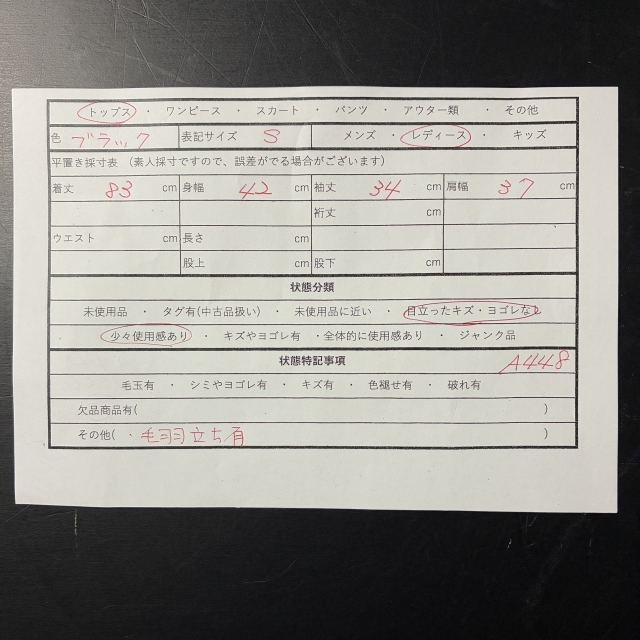 トップス ・ ワンピース ・ スカート ・ パンツ ・ アウター類 ・ その他
色 ブラック 表記サイズ S メンズ ・ レディース ・ キッズ
平置き採寸表 （素人採寸ですので、誤差がでる場合がございます）
着丈 83 cm 身幅 42 cm 袖丈 34 cm 肩幅 37 cm
裄丈 cm
ウエスト cm 長さ cm
股上 cm 股下 cm
状態分類
未使用品 ・ タグ有(中古品扱い) ・ 未使用品に近い ・ 目立ったキズ・ヨゴレなし
少々使用感あり ・ キズやヨゴレ有 ・全体的に使用感あり ・ ジャンク品
状態特記事項 A448
毛玉有 ・ シミやヨゴレ有 ・ キズ有 ・ 色褪せ有 ・ 破れ有
欠品商品有( )
その他( ・毛羽立ち有 )